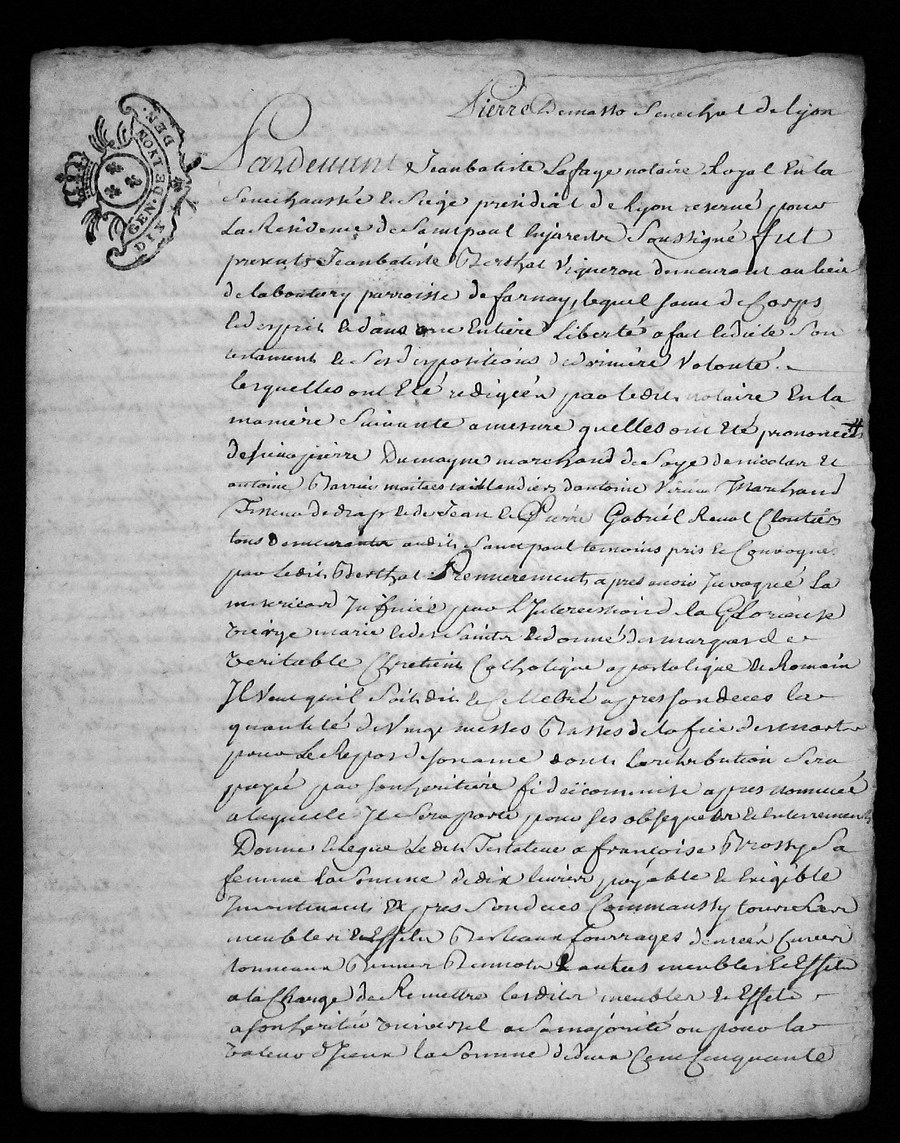 GEN. DE LYON
DIX DEN.
Pierre Demasso Senechal de lyon
Pardevant Jeanbatiste Lafage notaire Royal En la
Senechaussée & Siége presidial de Lyon reservé pour
La Residence de Saint paul En jarestz Soussigné fut
presents Jeanbatiste Berthal Vigneron demeurant au lieu
de la parroisse de farnay, lequel saine de Corps
& desprit & dans une Entiere Liberté a fait & dicté Son
testament & Ses dispositions de derniere Volonté.
lesquelles ont Eté redigéen par ledit notaire En la
maniere Suivante a mesure quelles ont Eté prononcées
de sieur pierre Dumayne marchand de Soye de nicolas Et
antoine Barriér maitres taillandiers dantoine Marchand
de drap & de Jean & Pierre Gabriel Renol Cloutier
tous demeurants audit Saint paul temoins pris & Convoqués
par Ledit Berthal Premierement apres avoir Invoqué La
misericord Infiniée par L'Intercession de la Glorieuse
Vierge marie & des Saints & donné des marques de
Veritable Chretient Catholique apostolique & Romain
Il Veut quil Soit dit & Cellebré apres son deces la
quantité de Vingt messes Basses de la fiée des morts
pour Le Repos de son ame dont La retribution Sera
payée par son heritiére fideicommise apres nommeé
a laquelle Il Se raporte pour ses obseques & Enterrements
Donne & legue Ledit Testateur a francoise Brossy Sa
femme La Somme de dix livres payable & Exigible
Incontinent Apres Son deces Comm aussy tous ses
meubles & Effets Bestiaux fourrages denreés Cuves
tonneaux & autres meubles & Effets
a la Charge de Remettre lesdits meubles & Effets
a son heritier universel a Sa majorité ou pour la
Valeur d'Iceux la Somme de deux Cent Cinquante